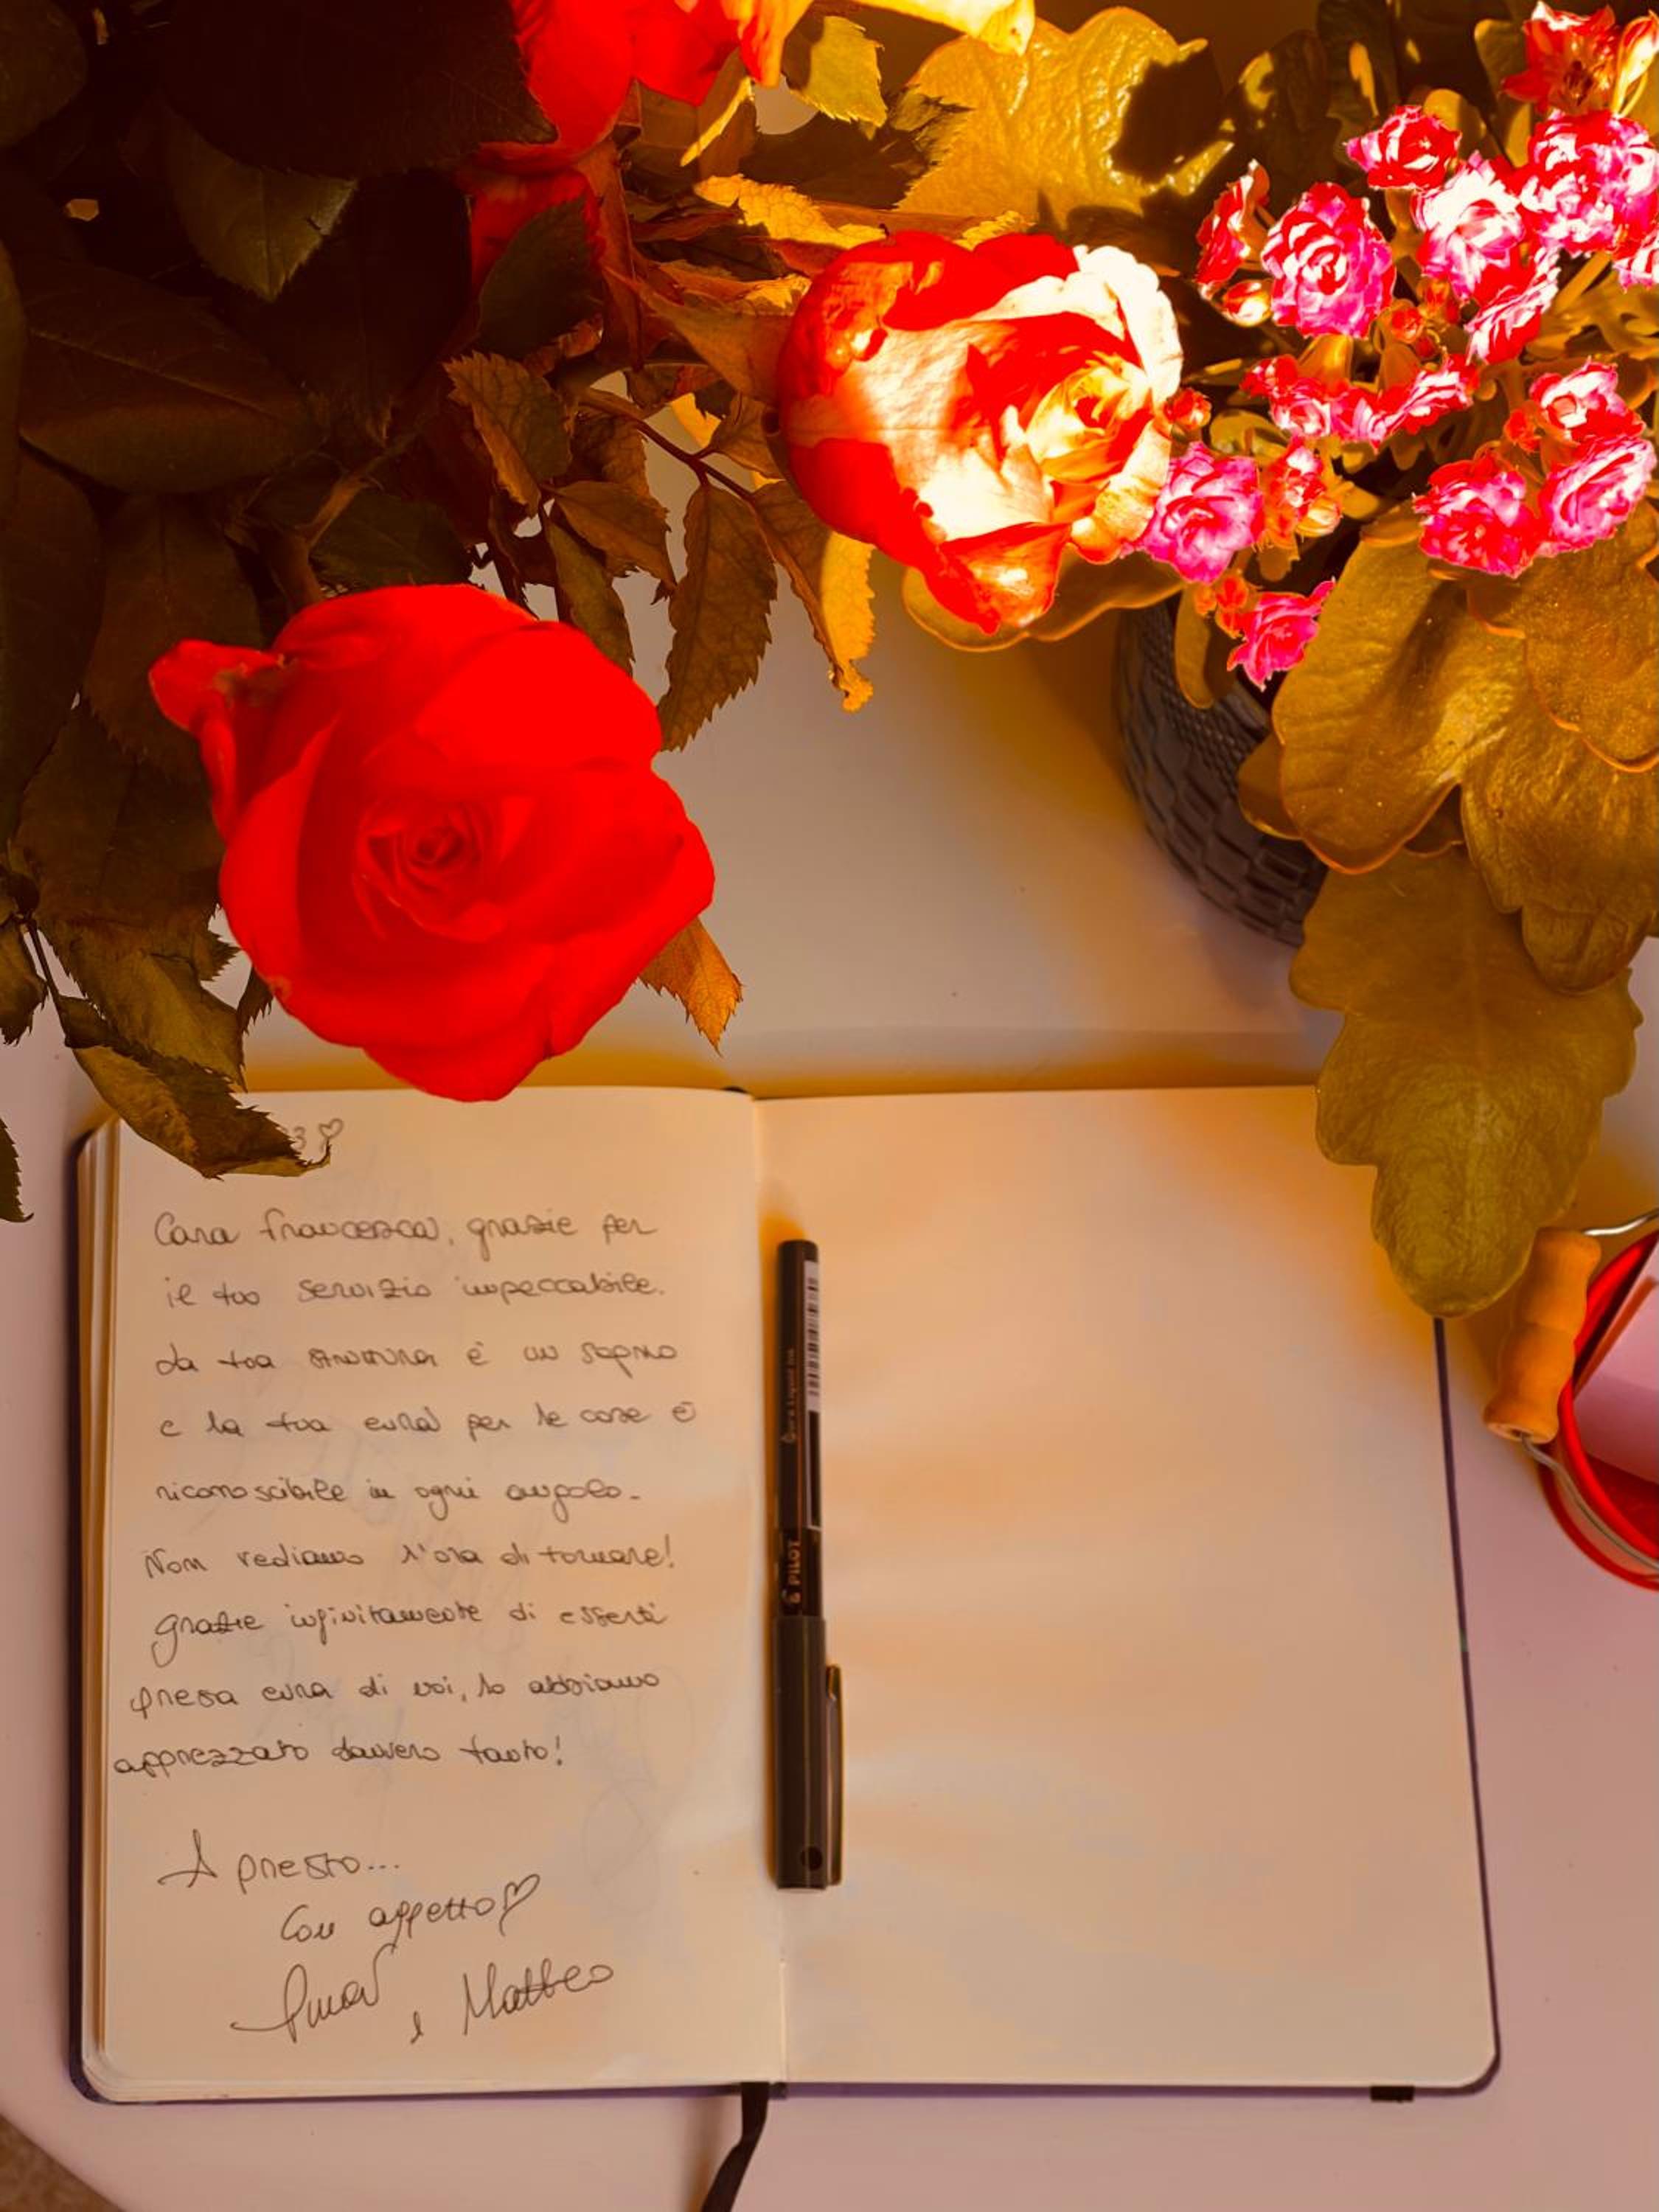 3♡
Cara Francesca, grazie per
il tuo servizio impeccabile.
La tua struttura è un sogno
e la tua cura per le cose è
riconoscibile in ogni angolo.
Non vediamo l'ora di tornare!
grazie infinitamente di esserti
presa cura di noi, lo abbiamo
apprezzato davvero tanto!
A presto...
Con affetto♡
e Matteo
PILOT